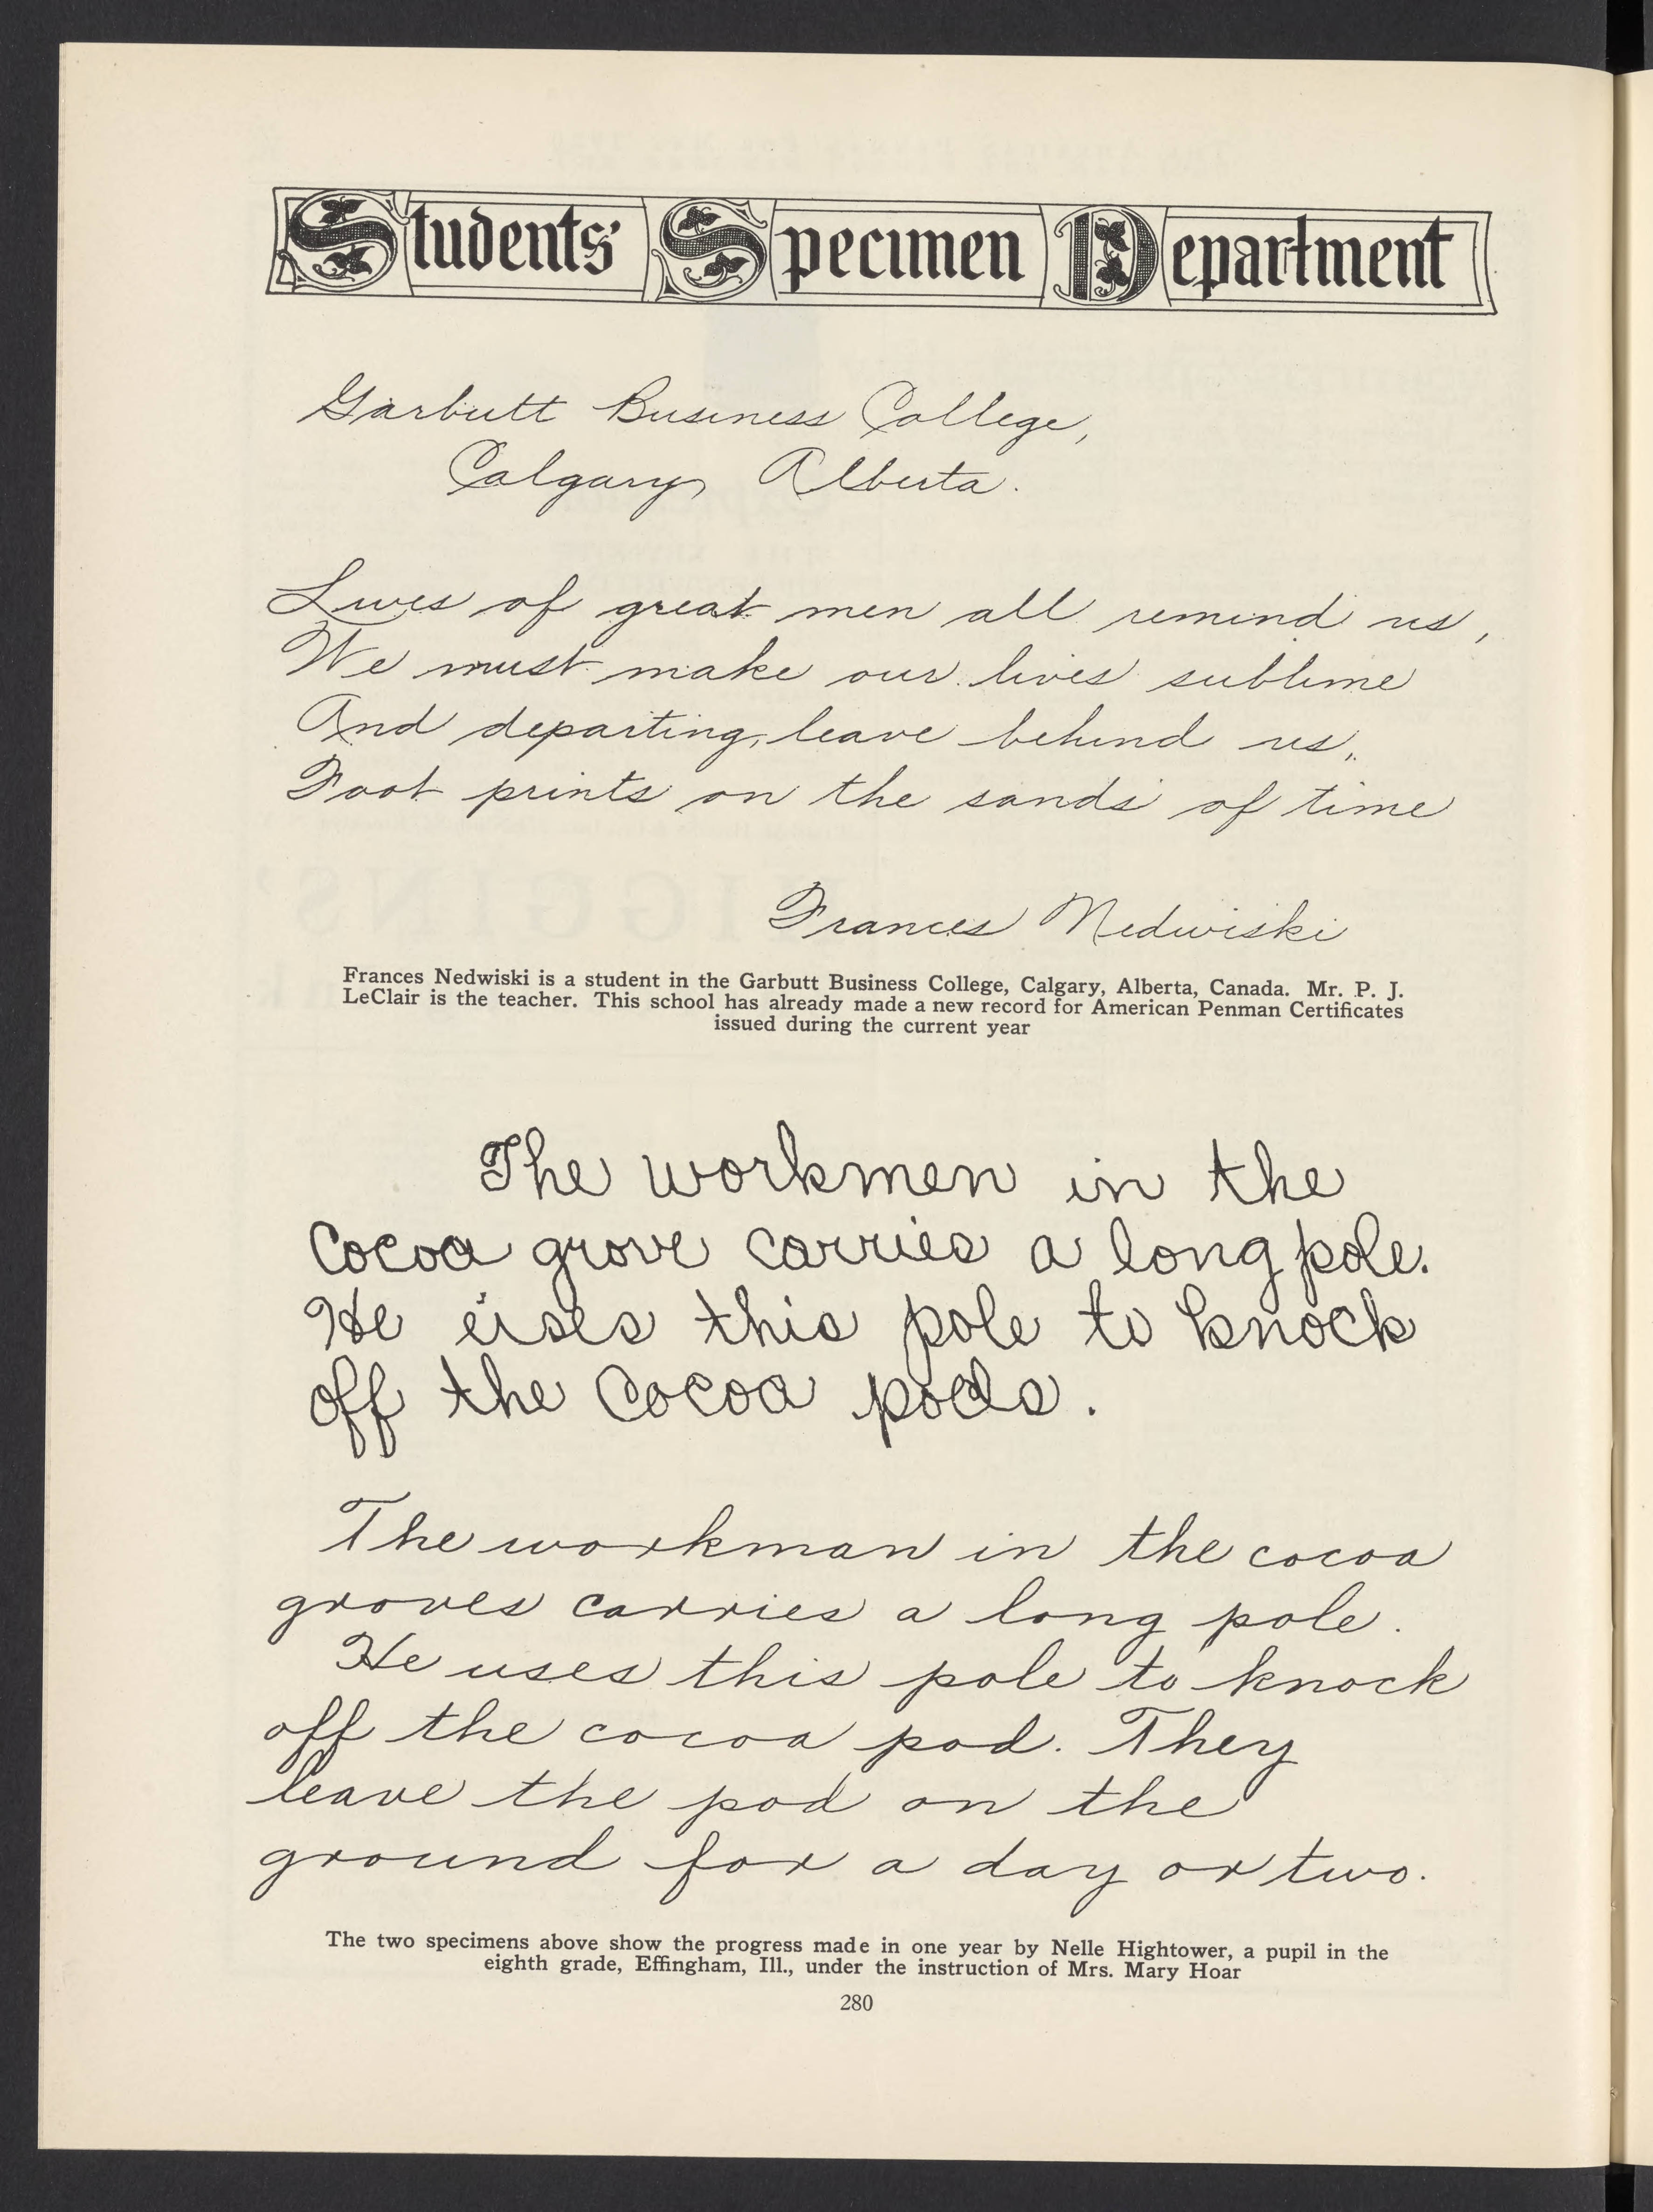 Students' Specimen Department
Garbutt Business College,
Calgary, Alberta.
Lives of great men all remind us,
We must make our lives sublime
And departing, leave behind us,
Foot prints on the sands of time
Frances Nedwiski
Frances Nedwiski is a student in the Garbutt Business College, Calgary, Alberta, Canada. Mr. P. J.
LeClair is the teacher. This school has already made a new record for American Penman Certificates
issued during the current year
The workmen in the
Cocoa grove carries a long pole.
He uses this pole to knock
off the Cocoa pods.
The workman in the cocoa
groves carries a long pole.
He uses this pole to knock
off the cocoa pod. They
leave the pod on the
ground for a day or two.
The two specimens above show the progress made in one year by Nelle Hightower, a pupil in the
eighth grade, Effingham, Ill., under the instruction of Mrs. Mary Hoar
280